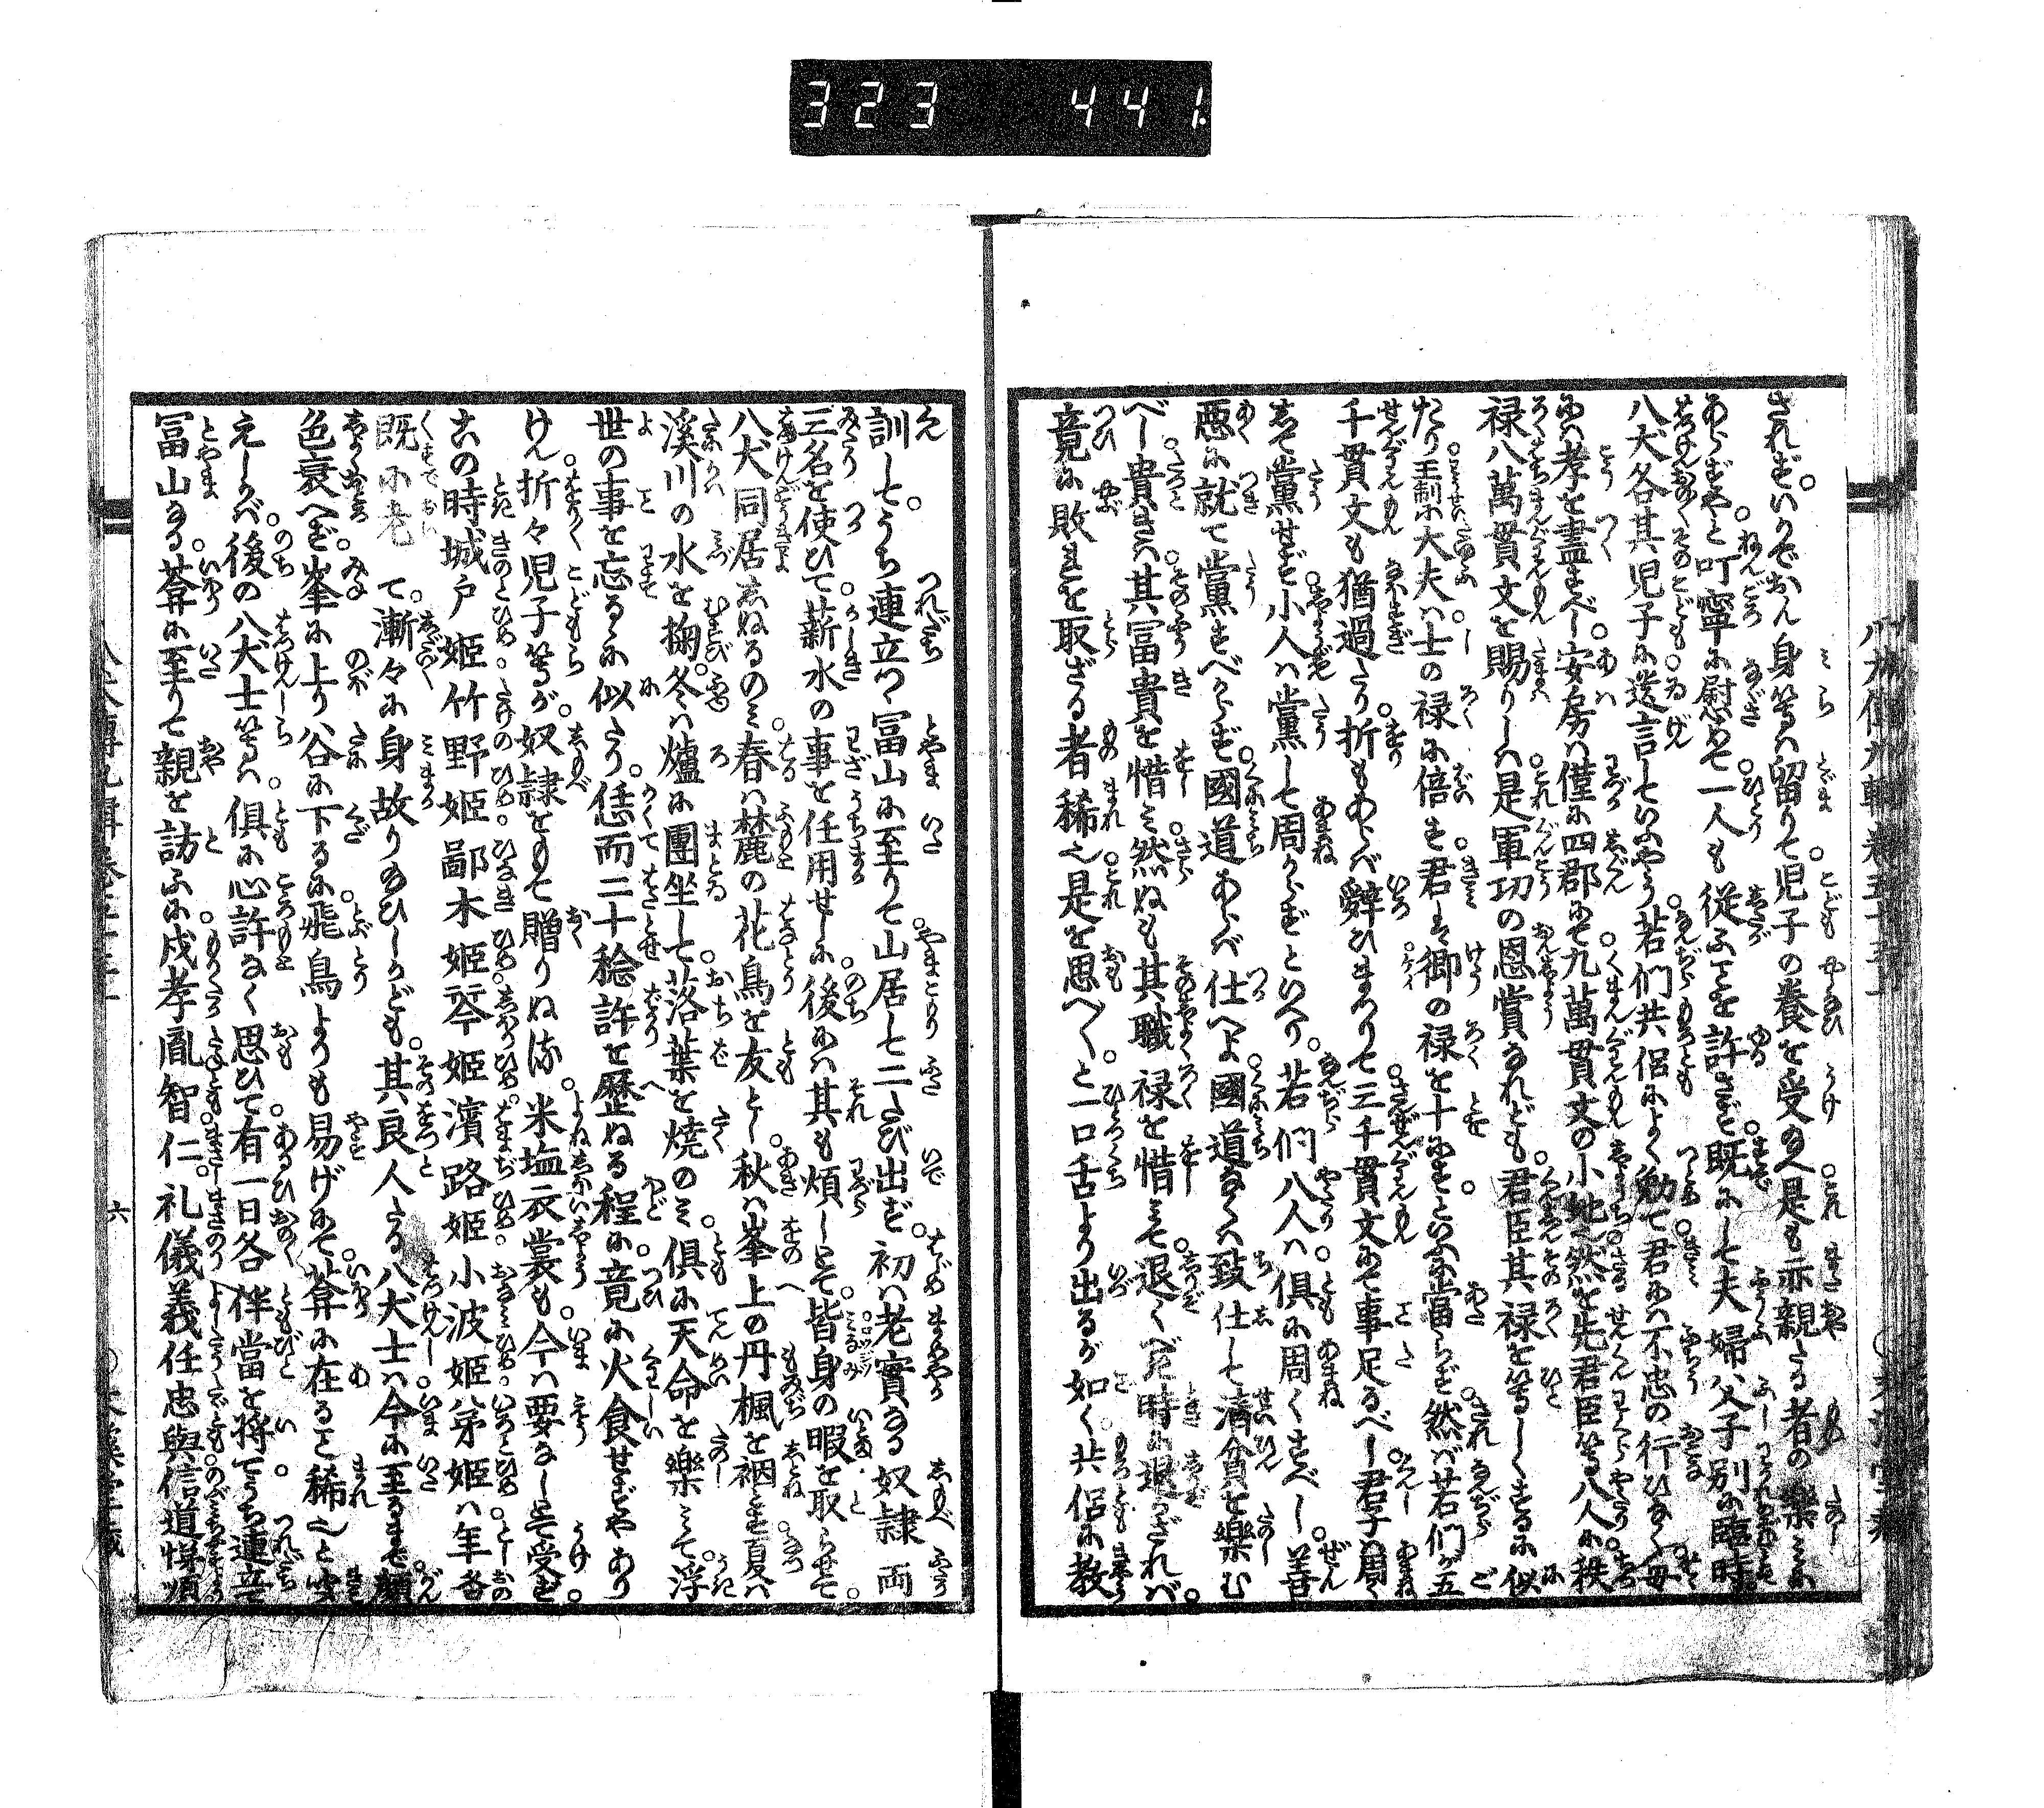 323 441
されば。いかでおん身等は留りて。児子の養を受給へ。是も亦親たる者の樂みに
あらずやと。叮寧に慰めて。一人も従ふことを許さず。既にして夫婦父子別に臨時。
八犬各其児子に。遺言していふやう。若們共侶によく勤て。君には不忠の行ひなく。母
には孝を盡すべし。安房は僅に四郡にて。九萬貫文の小地。然るを先君臣等八人に。秩
禄八萬貫文を賜りしは。是軍功の恩賞なれども。君臣其禄を等しくするに似
たり。王制に大夫は。士の禄に倍す。君は。卿の禄を十にすといふに當らず。然ば若們が五
千貫文も猶過たり。折もあらば辭ひまつりて。三千貫文にて事足るべし。君子は周く
して黨せず。小人は黨して周からずといへり。若們八人は。倶に周くすべし。善
悪に就て黨すべからず。國道あらば仕へよ。國道なくは致仕して。清貧を樂む
べし。貴きは。其冨貴を惜み。然ぬも其職禄を惜みて。退くべき時に退かざれば。
竟に敗れを取ざる者稀也。是を思へ〱と。一口舌より出るが如く。共侶に教
訓して。うち連立つ冨山に至りて。山居して二たび出ず。初は老實なる奴隷両
三名を使ひて。薪水の事を任用せしに。後には其も煩しとて。皆身の暇を取らせて。
八犬同居しぬるのみ。春は麓の花鳥を友とし。秋は峯上の丹楓を裀とす。夏は
溪川の水を掬。冬は爐に團坐して。落葉を焼のみ。倶に天命を樂みて。浮
世の事を忘るゝに似たり。恁而二十稔許を歴ぬる程に。竟に火食せずやあり
けん。折々児子等が。奴隷をもて贈りぬる。米塩衣裳も。今は要なしとて受ず。
この時城戸姫。竹野姫。鄙木姫。栞姫。濱路姫。小波姫。弟姫は。年各
既に老て。漸々に身故り給ひしかども。其良人たる八犬士は。今に至るまで。顔
色衰へず。峯に上り谷に下るに。飛鳥よりも易げにて。菴に在ること稀也と
えしかば。後の八犬士等は。倶に心許なく思ひて。有一日各伴當を将てうち連立て。
冨山なる。菴に至りて親を訪ふに。戍孝胤智仁。礼儀義任忠與信道悌順
八犬傳九輯巻五十三 六